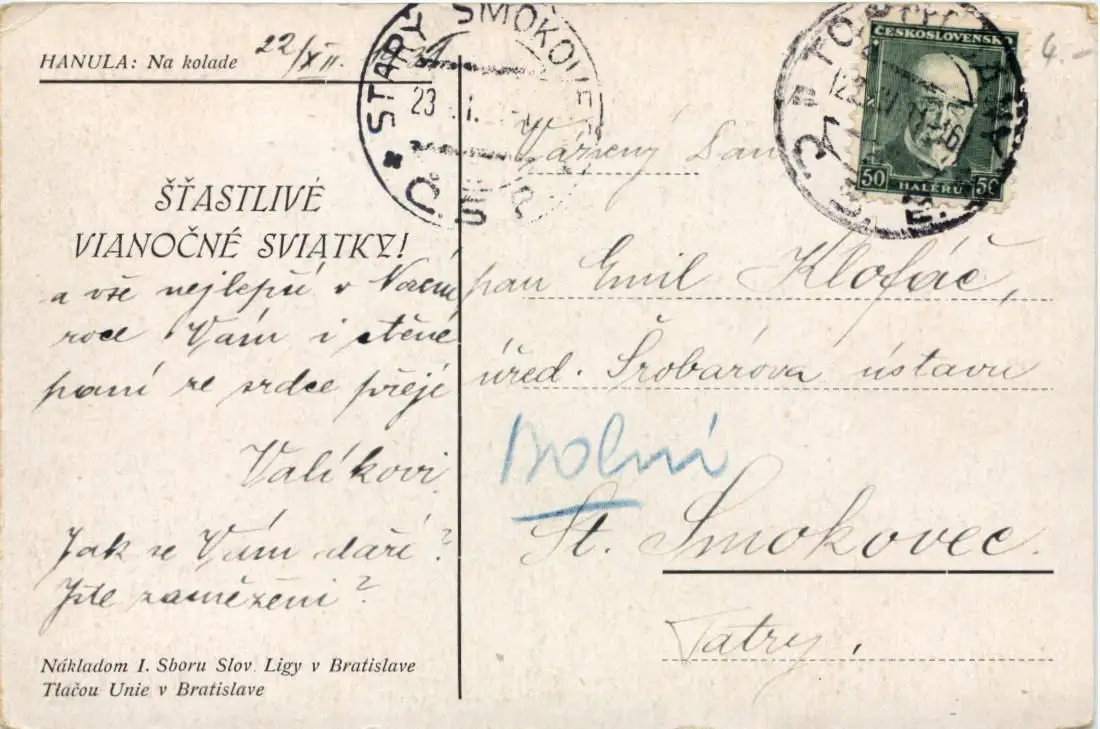 HANULA: Na kolade
22/XII.
STARÝ SMOKOVEC
23
ČESKOSLOVENSKO
50 HALÉŘŮ 50
4.-
Vážený pan
ŠŤASTLIVÉ
VIANOČNÉ SVIATKY!
a vše nejlepší v Novém
roce Vám i ctěné
paní ze srdce přejí
Valíkovi
Jak se Vám daří?
Jste zaměženi?
pan Emil Klofáč,
úřed. Šrobárova ústavu
Dolní
St. Smokovec.
Tatry.
Nákladom I. Sboru Slov. Ligy v Bratislave
Tlačou Unie v Bratislave